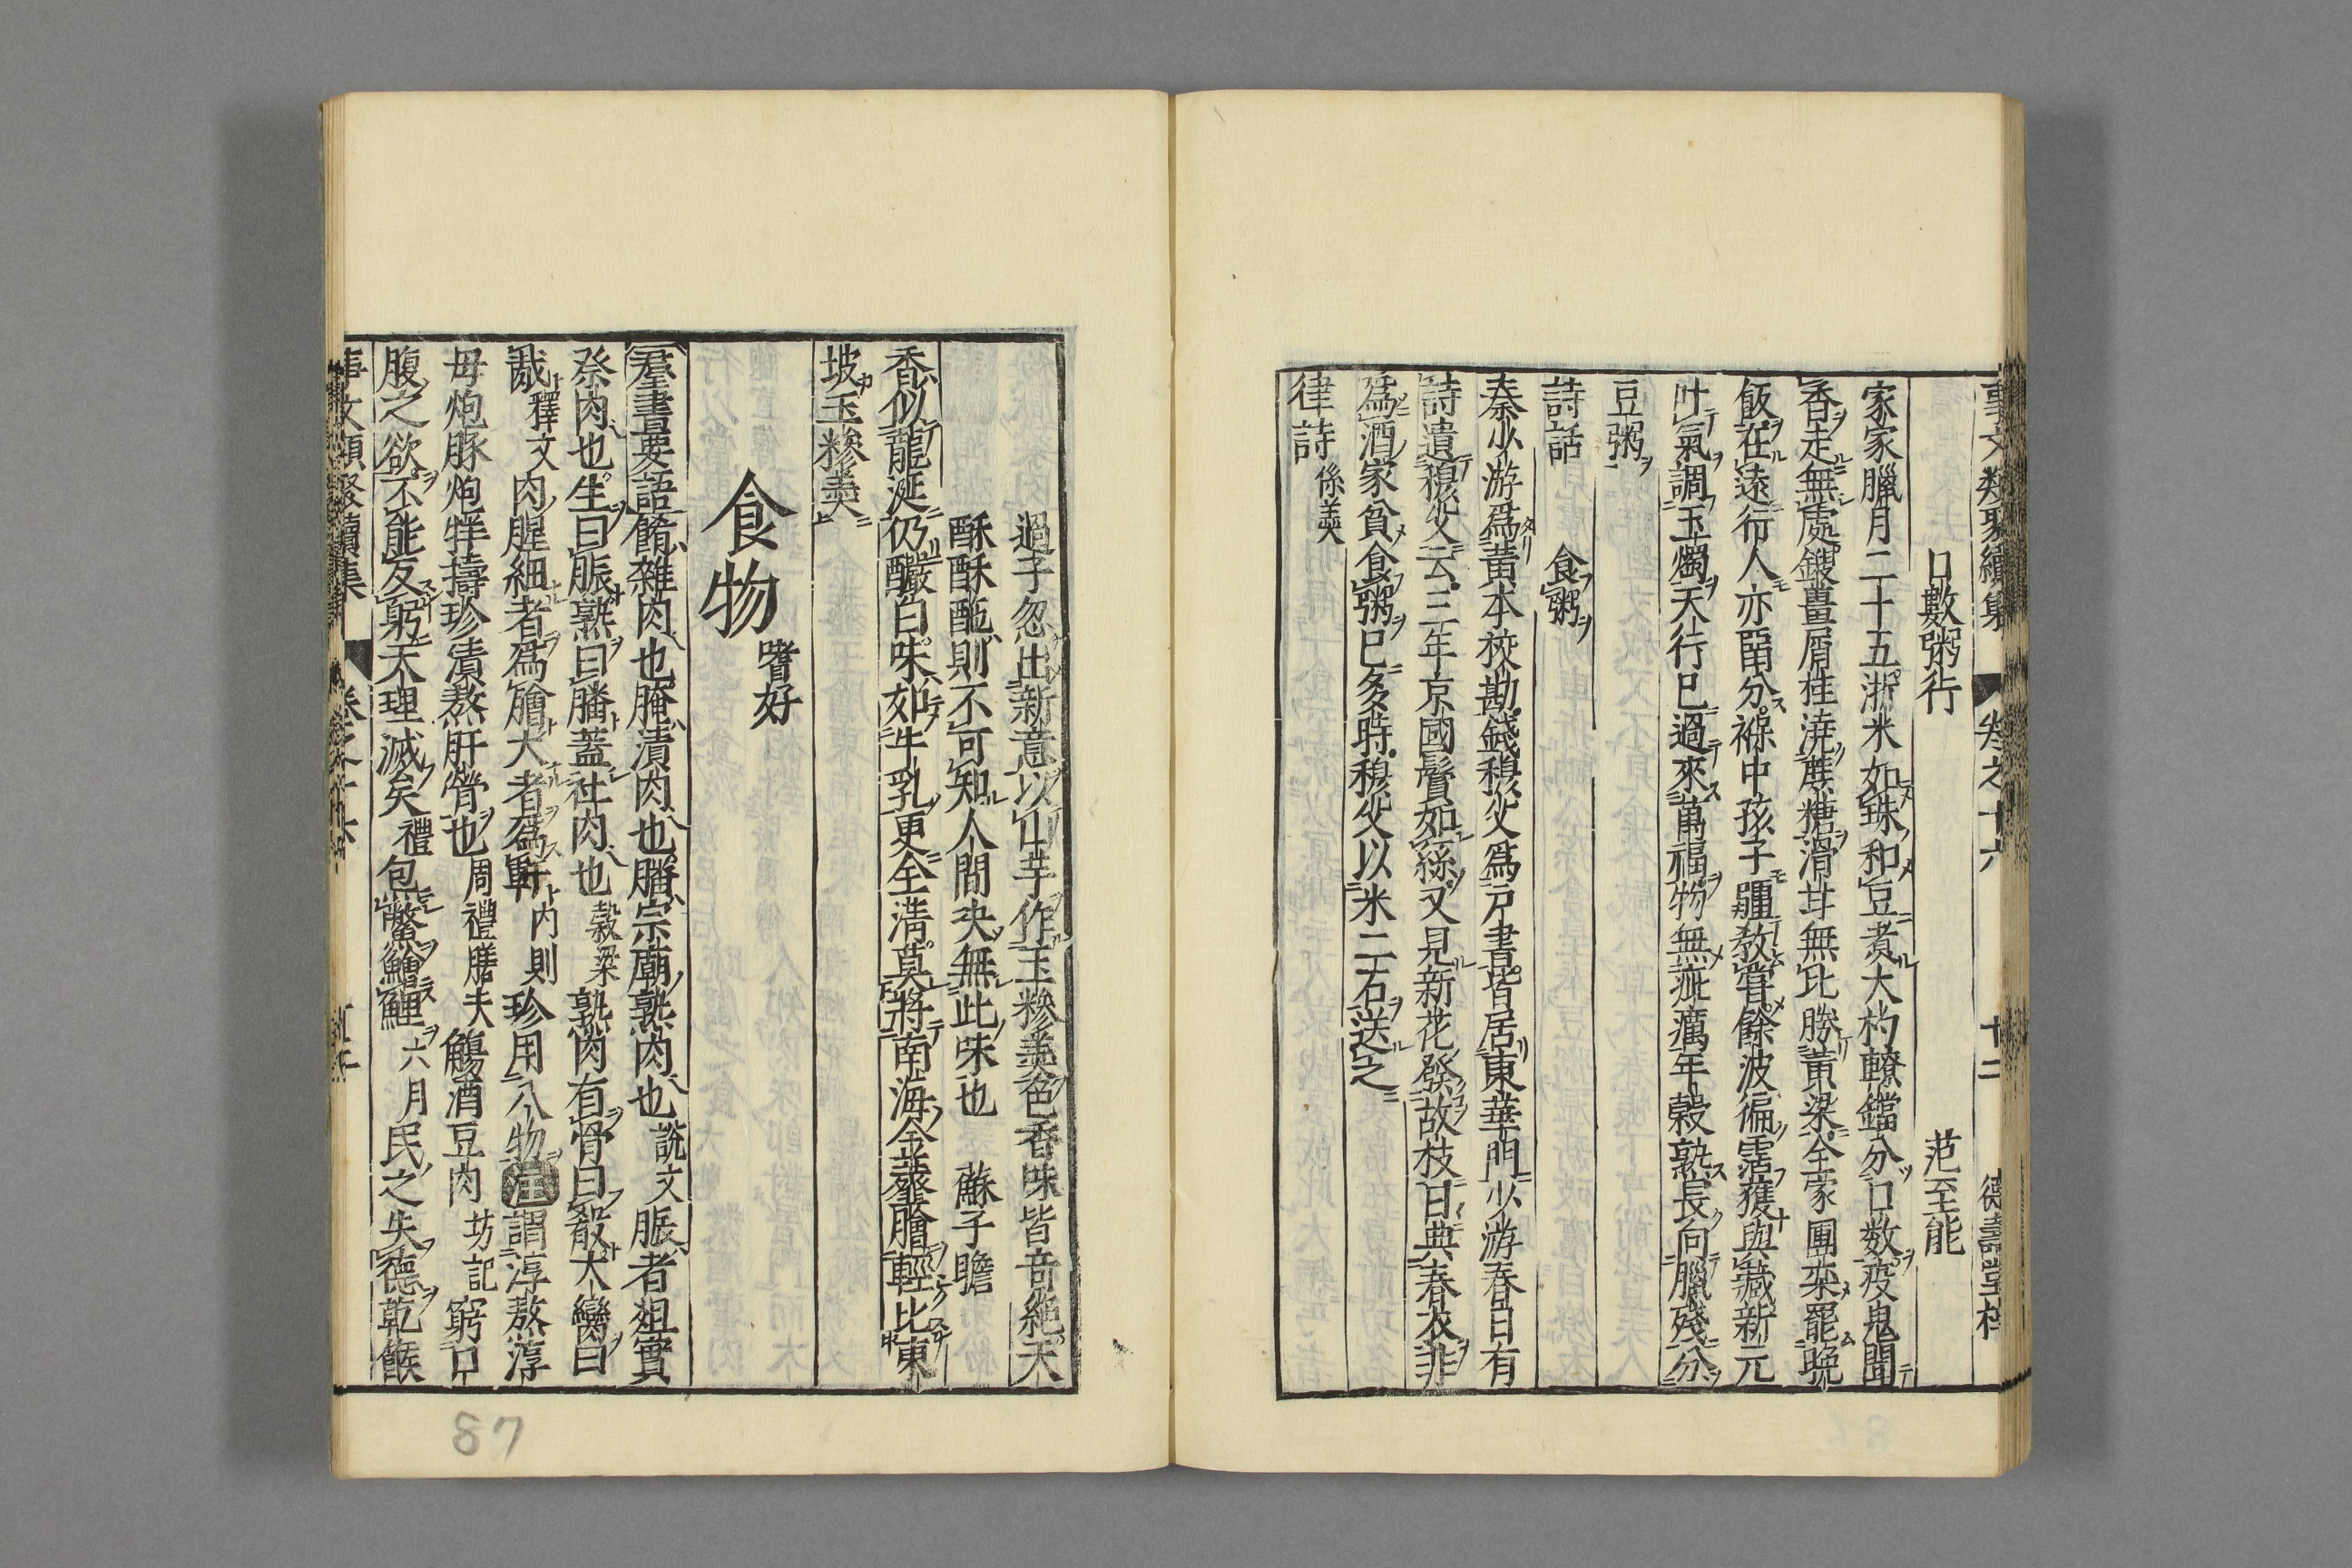 事文類聚續集 卷之十六 廿二 德壽堂梓
口數粥行 范至能
家家臘月二十五淅米如珠和豆煮大杓轑鐺分口數疫鬼聞
香走無處鎪薑屑桂澆蔗糖滑甘無比勝黃粱全家團欒罷晚
飯在遠行人亦留分褓中孩子彊教嘗餘波徧霑獲與臧新元
叶氣調玉燭天行已過來萬福物無疵癘年穀熟長向臘殘分
豆粥
詩話 食粥
秦少游爲黃本校勘錢穆父爲戶書皆居東華門少游春日有
詩遺穆父云三年京國鬢如絲又見新花發故枝日典春衣非
爲酒家貧食粥已多時穆父以米二石送之
律詩 係羹
過子忽出新意以山芋作玉糝羹色香味皆奇絕天
酥酥酏則不可知人間决無此味也 蘇子瞻
香似龍涎仍釅白味如牛乳更全淸莫將南海金虀膾輕比東
坡玉糝羹
食物 嗜好
羣書要語餚雜肉也腌漬肉也膰宗廟熟肉也說文脤者俎實
祭肉也生曰脤熟曰膰蓋社肉也穀梁熟肉有骨曰殽大臠曰
胾釋文肉腥細者爲膾大者爲軒内則珍用八物注謂淳熬淳
毋炮豚炮牂擣珍漬熬肝膋也周禮膳夫觴酒豆肉坊記窮口
腹之欲不能反躬天理滅矣禮包鱉鱠鯉六月民之失德乾餱
事文類聚續集 卷之十六
87